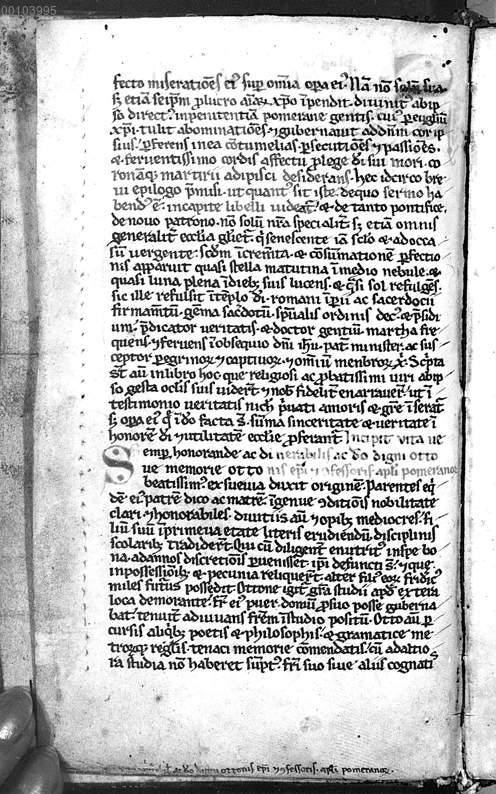 00103995
fecto miseratiões ei⁹ suꝑ om̄ia oꝑa ei⁹. Nā nō solū sua
sꝫ etiā seip̄m ꝓ lucro aīaꝝ xp̄o īpendit. diuinit⁹ ab ip
so direct⁹ in penitentiā pomerane gentis. cui⁹
xp̄i tulit abominatiōes ⁊ gubernauit ad dn̄m cor ip
sius. ꝑferens in ea cōtumelias ꝑsecutiōes ⁊ passiōes.
⁊ feruentissimo cordis affectu ꝓ lege di sui mori. co
ronāqꝫ martirii adipisci desiderans. hec idcirco bre
ui epilogo p̄misi. ut quant⁹ sit iste. de quo sermo ha
bend⁹ ē. in capite libelli uideat̄. ⁊ de tanto pontifice.
de nouo patrono. nō solū nr̄a specialit̄. sꝫ etiā omnis
generalit̄ ecclīa gl̄iet̄. qͥ senescente iā sclo ⁊ ad occa
sū uergente. scdm īcrem̄ta. ⁊ cōsūmationē ꝑfectio
nis apparuit quasi stella matutina ī medio nebule. ⁊
quasi luna plena ī dieb⁹ suis lucens. ⁊ qͣsi sol refulgēs.
sic ille refulsit ī tēplo di. romani īperii ac sacerdocii
firmam̄tū. gēma sac̄dotū. sp̄ualis ordinis dec⁹. ⁊ p̄sidi
um. p̄dicator ueritatis. ⁊ doctor gentiū. martha fre
quens. ⁊ feruens ī obsequio dn̄i ihu. pat̄ minister. ac sus
ceptor ꝑegrinoꝝ ⁊ captiuoꝝ. ⁊ om̄iū membroꝝ xp̄i. Scͥpta
st̄ aū in libro hoc que religiosi ac ꝓbatissimi uiri ab ip
so gesta oclis suis uider̄t ⁊ nob̄ fidelit̄ enarrauer̄t. ut ī
testimonio ueritatis nich̄ p̄uati amoris ⁊ gr̄e īserāt
sꝫ oꝑa ei⁹ qͥ ī dō facta s̄t. sūma sinceritate ⁊ ueritate ī
honorē di ⁊ utilitatē ecclīe ꝓferant. Incipit uita ue
Semꝑ honorande ac di nerabilis ac dō digni otto
ue memorie otto nis ep̄i ⁊ ɔfessoris. apl̄i pomeranoꝝ
beatissim⁹ ex sueuia duxit originē. Parentes eqͥ
dē ei⁹ patrē dico ac matrē. īgenue ɔditiōis nobilitate
clari. ⁊ honorabiles. diuitiis aū ⁊ opib⁹ mediocres. fi
liū suū ī primeua etate literis erudiendū disciplinis
scolarib⁹ tradider̄t. Qui cū diligent̄ enutrit⁹ in spe bo
na. ad annos discretiōis ꝑuenisset. ip̄i defuncti s̄t. ⁊ que
in possessiōib⁹ ⁊ pecunia reliquer̄t. alter fili⁹ eoꝝ fridic⁹
miles futur⁹ possedit. Ottone igit̄ gr̄a studii apd̄ extera
loca demorante. fr̄ ei⁹ puer domū ꝓ suo posse guberna
bat. tenuit̄ adiuuans frēm ī studio positū. Otto aū ꝑ
cursis aliqͥb⁹ poetis ⁊ philosophis. ⁊ gramatice me
troꝝqꝫ regl̄is. tenaci memorie cōmendatis. cū ad altio
ra studia nō haberet sūpt⁹. fr̄i suo siue aliis cognatis
ac dō digni ottonis ep̄i ⁊ ɔfessoris. apl̄i pomeranoꝝ.